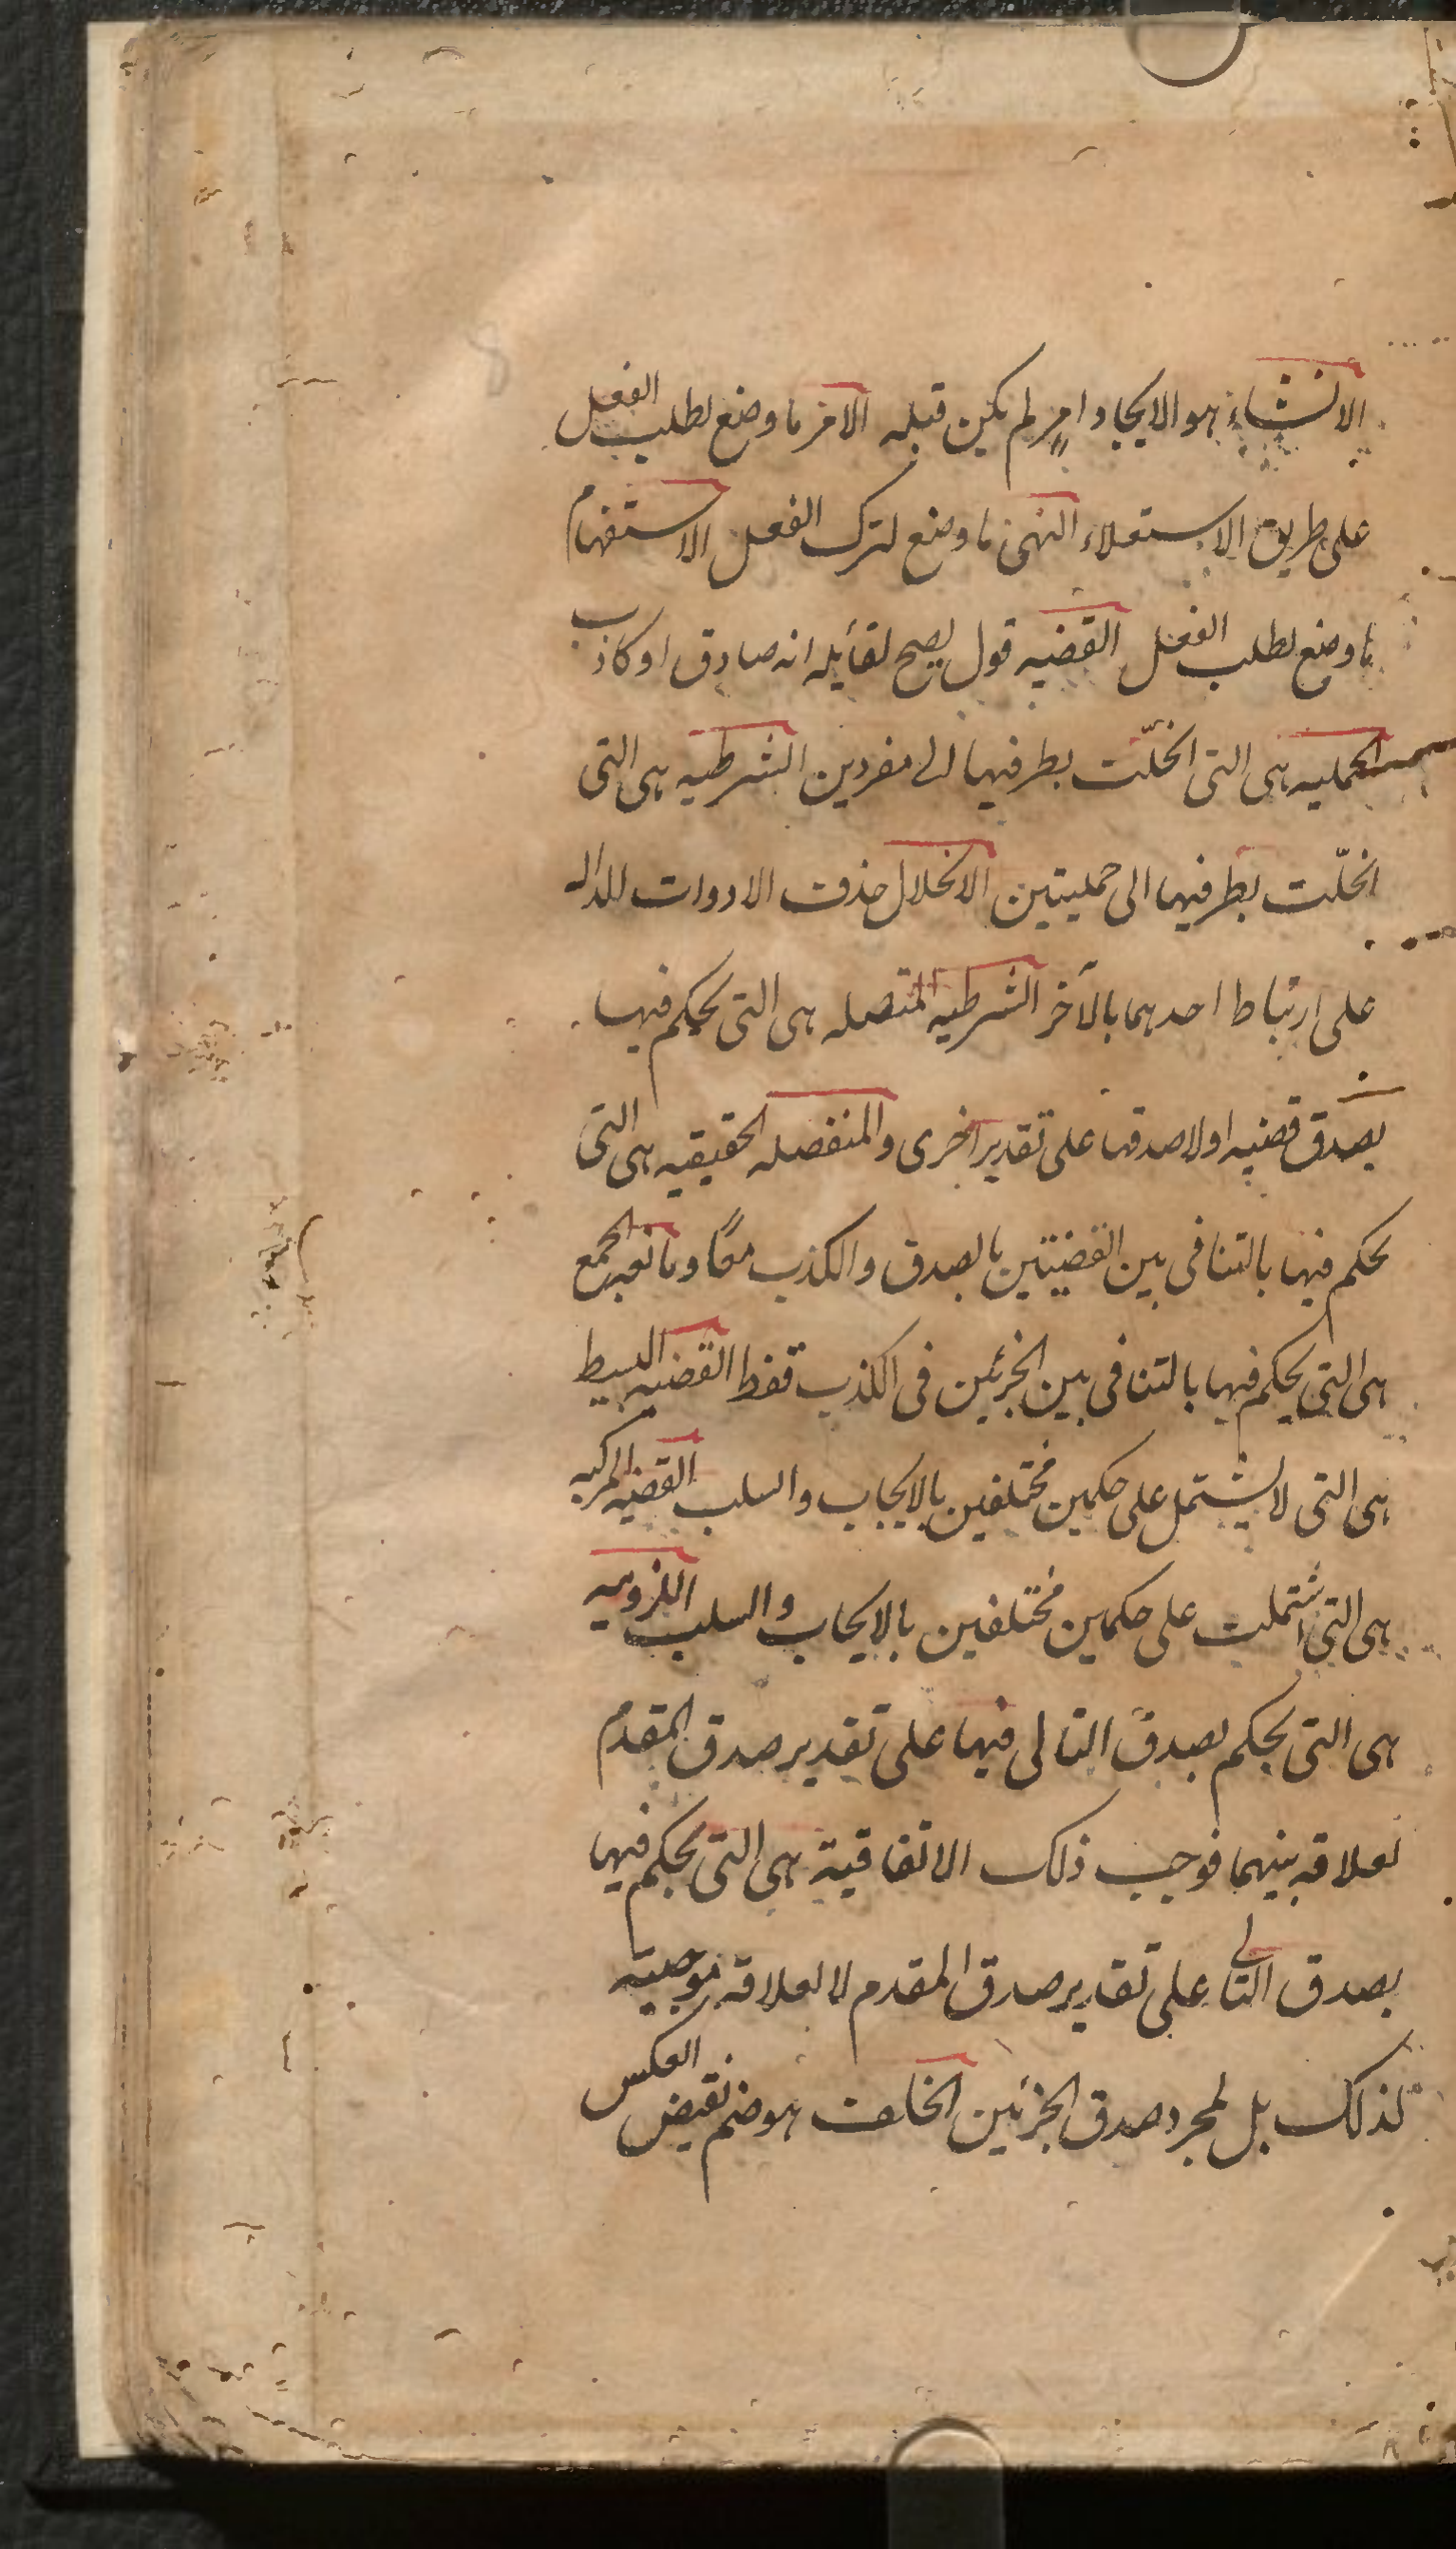 الانشاء هو الايجاد امر لم يكن قبله الامر ما وضع لطلب الفعل
على طريق الاستعلاء النهى ما وضع لترك الفعل الاستفهام
ما وضع لطلب الفعل القضيه قول يصح لقايله انه صادق او كاذب
الحمليه هى التى انحلّت بطرفيها الى مفردين الشرطيه هى التى
انحلّت بطرفيها الى حمليتين الانحلال حذف الادوات الداله
على ارتباط احدهما بالآخر الشرطيه المتصله هى التى يحكم فيها
بصدق قضيه او لا صدقها على تقدير اخرى والمنفصله الحقيقيه هى التى
يحكم فيها بالتنافى بين القضيتين بالصدق والكذب معًا ومانعه الجمع
هى التى يحكم فيها بالتنافى بين الجزئين فى الكذب فقط القضيه البسيط
هى التى لا يشتمل على حكمين مختلفين بالايجاب والسلب القضيه المركبه
هى التى اشتملت على حكمين مختلفين بالايجاب والسلب اللزوميه
هى التى يحكم بصدق التالى فيها على تقدير صدق المقدم
لعلاقه بينهما فوجب ذلك الاتفاقية هى التى يحكم فيها
بصدق التالى على تقدير صدق المقدم لا لعلاقة موجبته
لذلك بل لمجرد صدق الجزئين الخلف هو ضم نقيض العكس